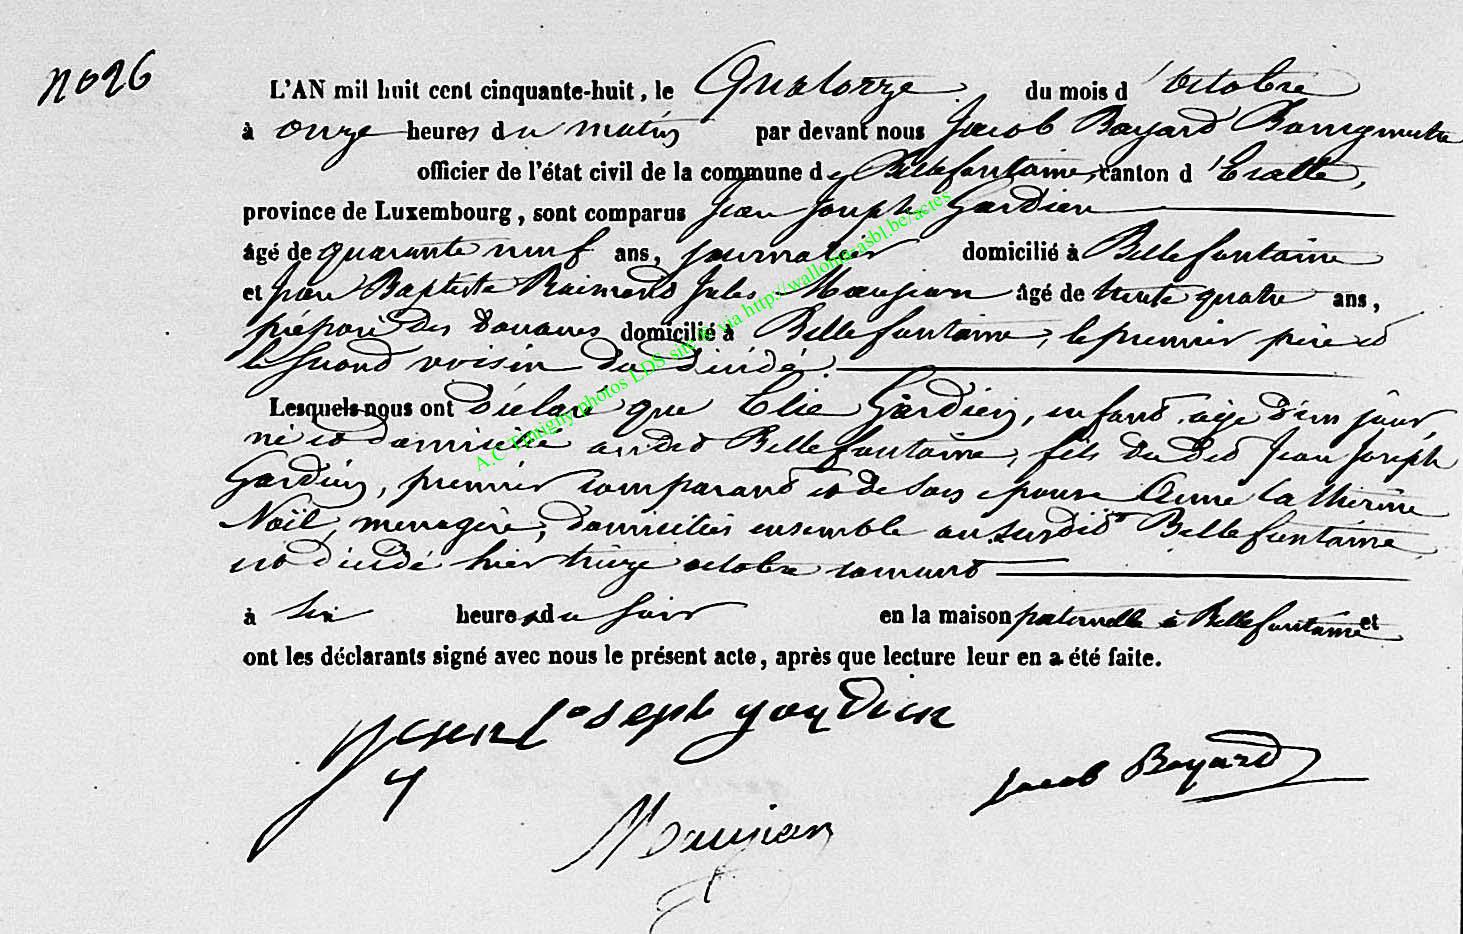 no 26
L'AN mil huit cent cinquante-huit, le Quatorze du mois d'Octobre
à onze heures du matin par devant nous Jacob Bayard Bourgmestre
officier de l'état civil de la commune de Bellefontaine, canton d'Etalle,
province de Luxembourg, sont comparus Jean Joseph Gardien
âgé de quarante neuf ans, journalier domicilié à Bellefontaine
et Jean Baptiste Raimond Jules Maujean âgé de trente quatre ans,
préposé des douanes domicilié à Bellefontaine, le premier père et
le second voisin du décédé.
Lesquels nous ont déclaré que Elie Gardien, enfant âgé d'un jour,
né et domicilié audit Bellefontaine, fils du dit Jean Joseph
Gardien, premier comparant et de son epouse Anne Catherine
Noël, menagère, domiciliés ensemble au susdit Bellefontaine
est décédé hier treize octobre courant
à six heures du soir en la maison paternelle à Bellefontaine et
ont les déclarants signé avec nous le présent acte, après que lecture leur en a été faite.
jean joseph gardien
Jacob Bayard
Maujean
A.C Tintigny photos LDS via http://wallonica.asbl.be/actes